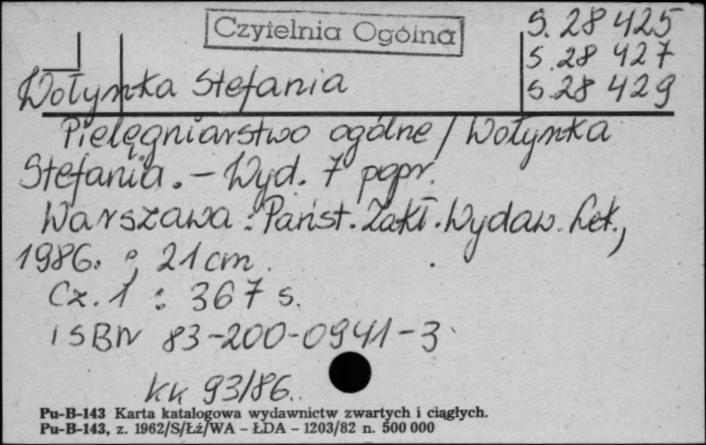 Czytelnia Ogólna
S. 28 425
S. 28 427
S. 28 429
Wołynka Stefania
Pielęgniarstwo ogólne / Wołynka
Stefania. – Wyd. 7 popr.
Warszawa : Państ. Zakł. Wydaw. Lek.,
1986. ; 21 cm.
Cz. 1 : 367 s.
ISBN 83-200-0941-3
kk 93/86.
Pu-B-143 Karta katalogowa wydawnictw zwartych i ciągłych.
Pu-B-143, z. 1962/S/Łź/WA – ŁDA – 1203/82 n. 500 000